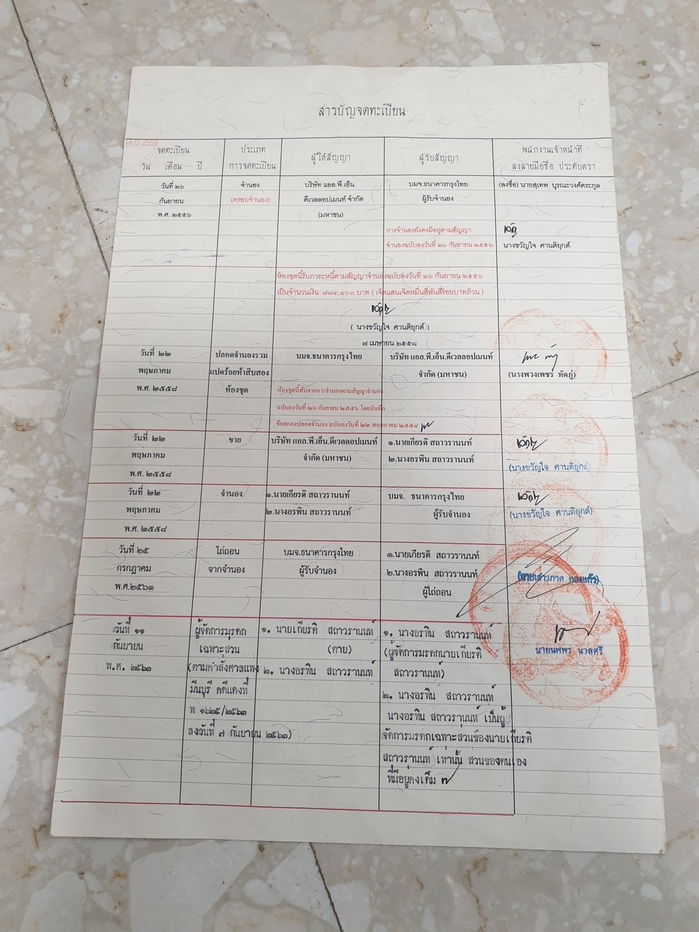 สารบัญจดทะเบียน
จดทะเบียน
วัน เดือน ปี
ประเภท
การจดทะเบียน
ผู้ให้สัญญา
ผู้รับสัญญา
พนักงานเจ้าหน้าที่
ลงลายมือชื่อ ประทับตรา
วันที่ ๒๖
กันยายน
พ.ศ. ๒๕๕๖
จำนอง
(ครอบจำนอง)
บริษัท แอล.พี.เอ็น.
ดีเวลลอปเมนท์ จำกัด
(มหาชน)
บมจ.ธนาคารกรุงไทย
ผู้รับจำนอง
(ลงชื่อ) นายสุเทพ บูรณะวงศ์ตระกูล
การจำนองยังคงมีอยู่ตามสัญญา
จำนองฉบับลงวันที่ ๒๖ กันยายน ๒๕๕๖
นางขวัญใจ ศานติยุกต์
ห้องชุดนี้รับภาระหนี้ตามสัญญาจำนองฉบับลงวันที่ ๒๖ กันยายน ๒๕๕๖
เป็นจำนวนเงิน ๗๗๔,๔๐๐ บาท (เจ็ดแสนเจ็ดหมื่นสี่พันสี่ร้อยบาทถ้วน)
( นางขวัญใจ ศานติยุกต์ )
๗ เมษายน ๒๕๕๘
วันที่ ๒๒
พฤษภาคม
พ.ศ. ๒๕๕๘
ปลอดจำนองรวม
แปดร้อยห้าสิบสอง
ห้องชุด
บมจ.ธนาคารกรุงไทย
บริษัท แอล.พี.เอ็น.ดีเวลลอปเมนท์
จำกัด (มหาชน)
(นางพวงเพชร ทัดภู่)
ห้องชุดนี้พ้นจากการจำนองตามสัญญาจำนอง
ฉบับลงวันที่ ๒๖ กันยายน ๒๕๕๖ โดยบันทึก
ข้อตกลงปลอดจำนอง ฉบับลงวันที่ ๒๒ พฤษภาคม ๒๕๕๘
วันที่ ๒๒
พฤษภาคม
พ.ศ. ๒๕๕๘
ขาย
บริษัท แอล.พี.เอ็น.ดีเวลลอปเมนท์
จำกัด (มหาชน)
๑.นายเกียรติ สถาวรานนท์
๒.นางอรพิน สถาวรานนท์
(นางขวัญใจ ศานติยุกต์)
วันที่ ๒๒
พฤษภาคม
พ.ศ. ๒๕๕๘
จำนอง
๑.นายเกียรติ สถาวรานนท์
๒.นางอรพิน สถาวรานนท์
บมจ. ธนาคารกรุงไทย
ผู้รับจำนอง
(นางขวัญใจ ศานติยุกต์)
วันที่ ๒๕
กรกฎาคม
พ.ศ.๒๕๖๑
ไถ่ถอน
จากจำนอง
บมจ.ธนาคารกรุงไทย
ผู้รับจำนอง
๑.นายเกียรติ สถาวรานนท์
๒.นางอรพิน สถาวรานนท์
ผู้ไถ่ถอน
วันที่ ๑๑
กันยายน
พ.ศ. ๒๕๖๓
ผู้จัดการมรดก
เฉพาะส่วน
(ตามคำสั่งศาลแพ่ง
มีนบุรี คดีแดงที่
พ ๑๖๒๕/๒๕๖๓
ลงวันที่ ๗ กันยายน ๒๕๖๓)
๑. นายเกียรติ สถาวรานนท์
(ตาย)
๒. นางอรพิน สถาวรานนท์
๑. นางอรพิน สถาวรานนท์
(ผู้จัดการมรดกนายเกียรติ
สถาวรานนท์)
๒. นางอรพิน สถาวรานนท์
นางอรพิน สถาวรานนท์ เป็นผู้
จัดการมรดกเฉพาะส่วนของนายเกียรติ
สถาวรานนท์ เท่านั้น ส่วนของตนเอง
ที่มีอยู่คงเดิม